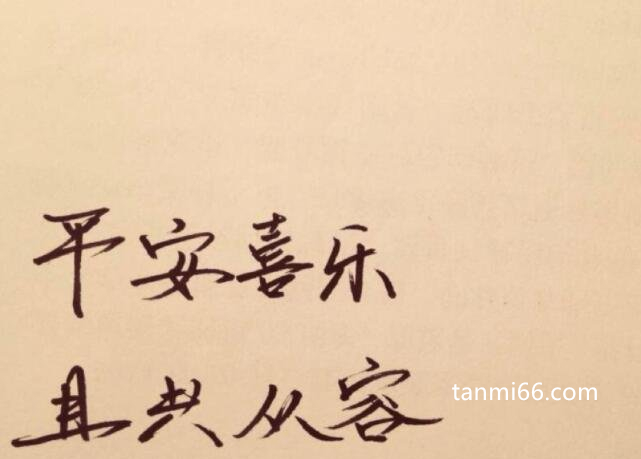 平安喜乐
且共从容
tanmi66.com